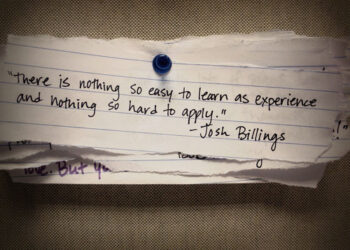 "There is nothing so easy to learn as experience
and nothing so hard to apply."
-Josh Billings
!"
love. But yo